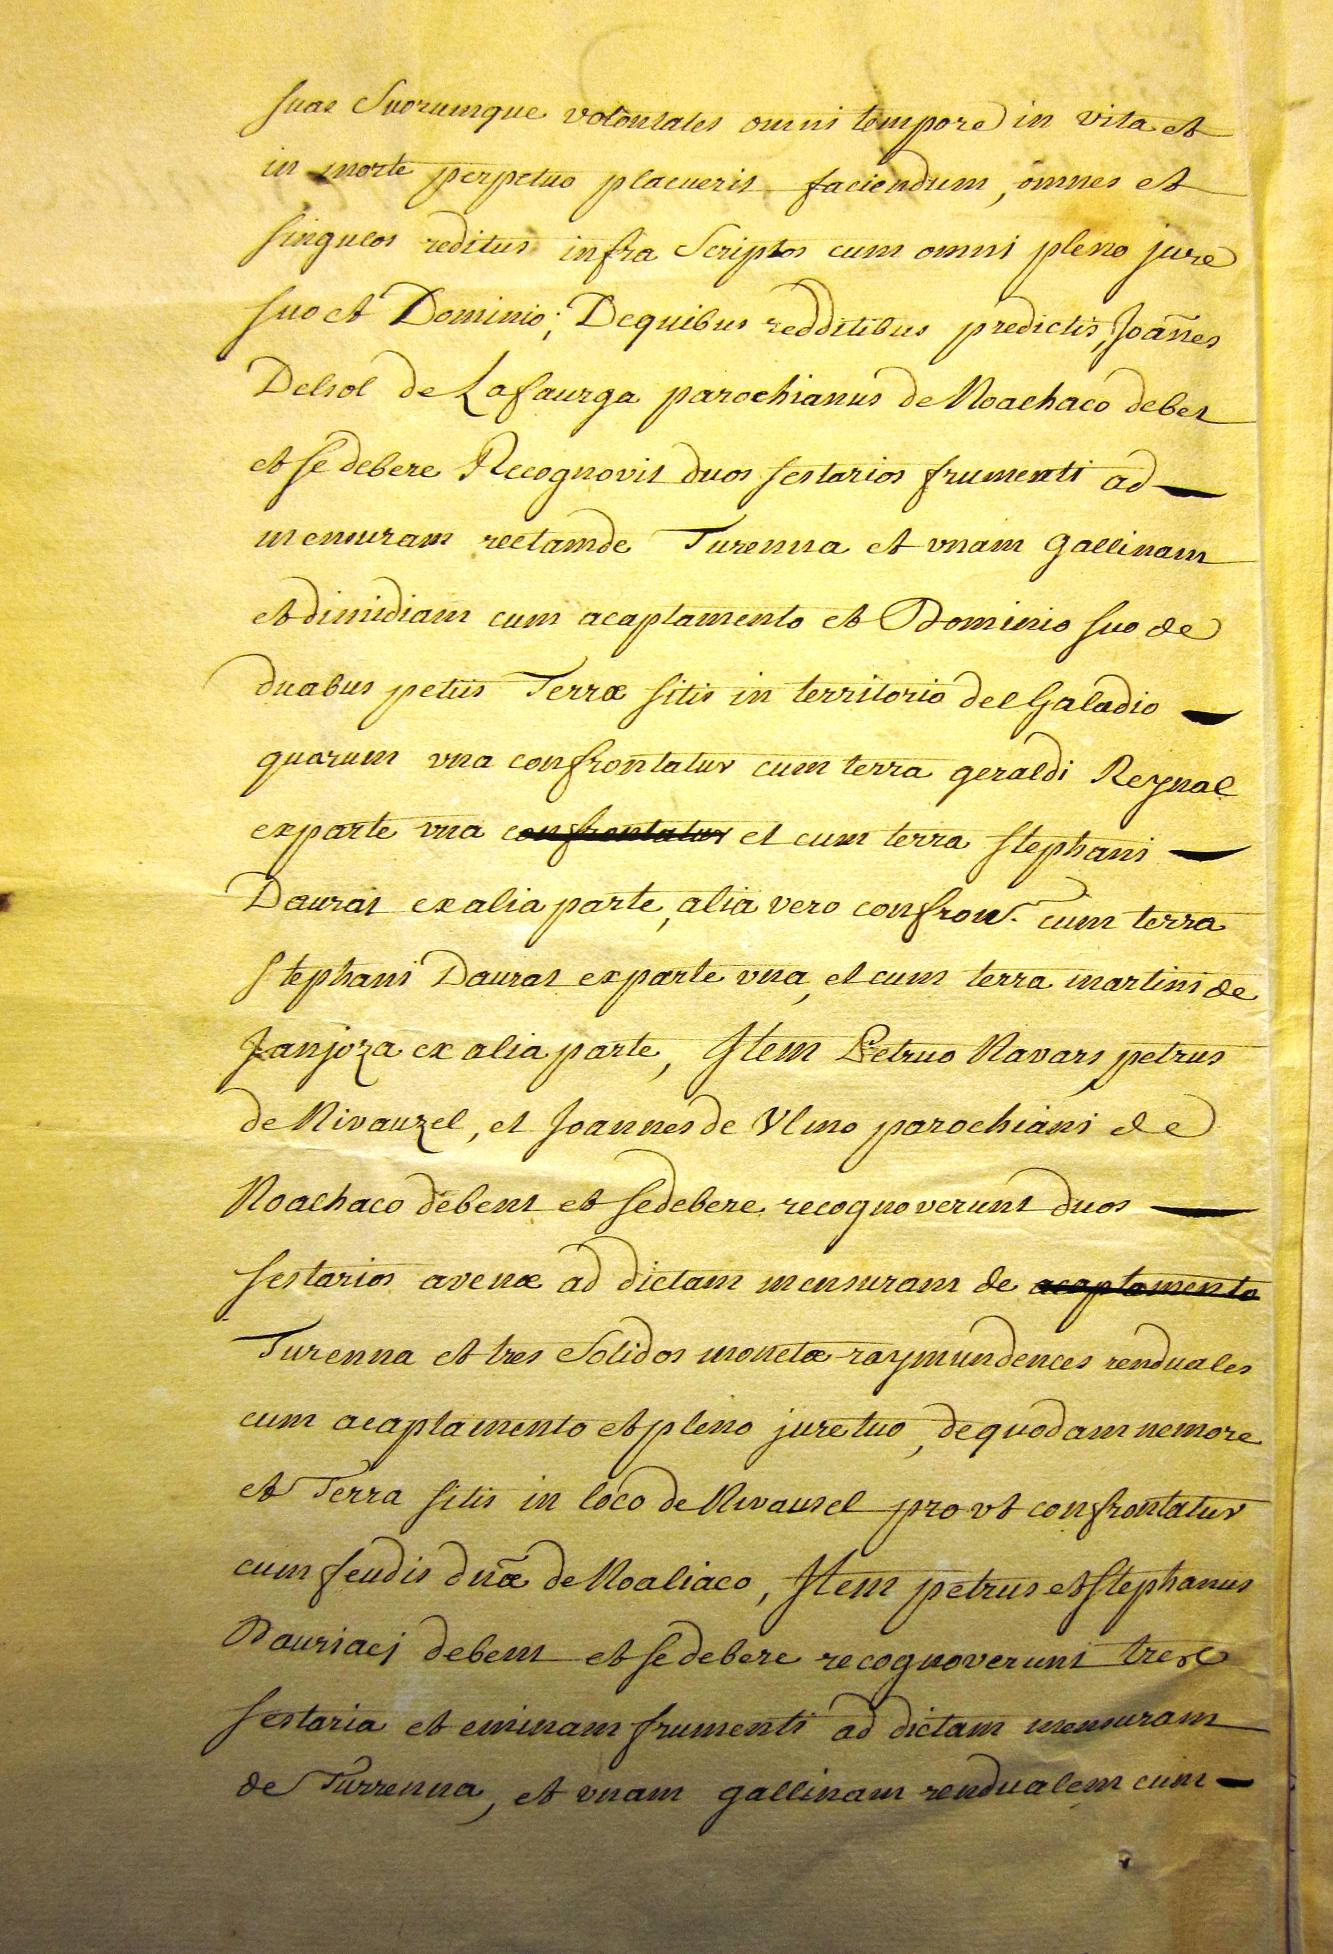 suas Suorumque volontates omni tempore in vita et
in morte perpetuo placuerit faciendum, omnes et
singulos reditus infra Scriptos cum omni pleno jure
suo et Dominio; De quibus redditibus predictis, Joañes
Delsol de Lafaurga parochianus de Noachaco debet
et se debere Recognovit duos sestarios frumenti ad
mensuram rectam de Turenna et vnam gallinam
et dimidiam cum acaptamento et Dominio suo de
duabus petiis Terræ sitis in territorio del Galadio
quarum vna confrontatur cum terra geraldi Reynal
ex parte vna confrontatur et cum terra stephani
Daurat ex alia parte, alia vero confron. cum terra
stephani Daurat ex parte vna, et cum terra martini de
Janjoza ex alia parte, Item Petrus Navars, petrus
de Rivauzel, et Joannes de Vlmo parochiani de
Noachaco debent et se debere recognoverunt duos
sestarios avenæ ad dictam mensuram de acaptamento
Turenna et tres Solidos monetæ raymundences renduales
cum acaptamento et pleno jure suo, de quodam nemore
et Terra sitis in loco de Rivausel pro vt confrontatur
cum feudis dnæ̃ de Noaliaco, Item petrus et Stephanus
Dauriaci debent et se debere recognoverunt tres
sestaria et eminam frumenti ad dictam mensuram
de Turrenna, et vnam gallinam rendualem cum